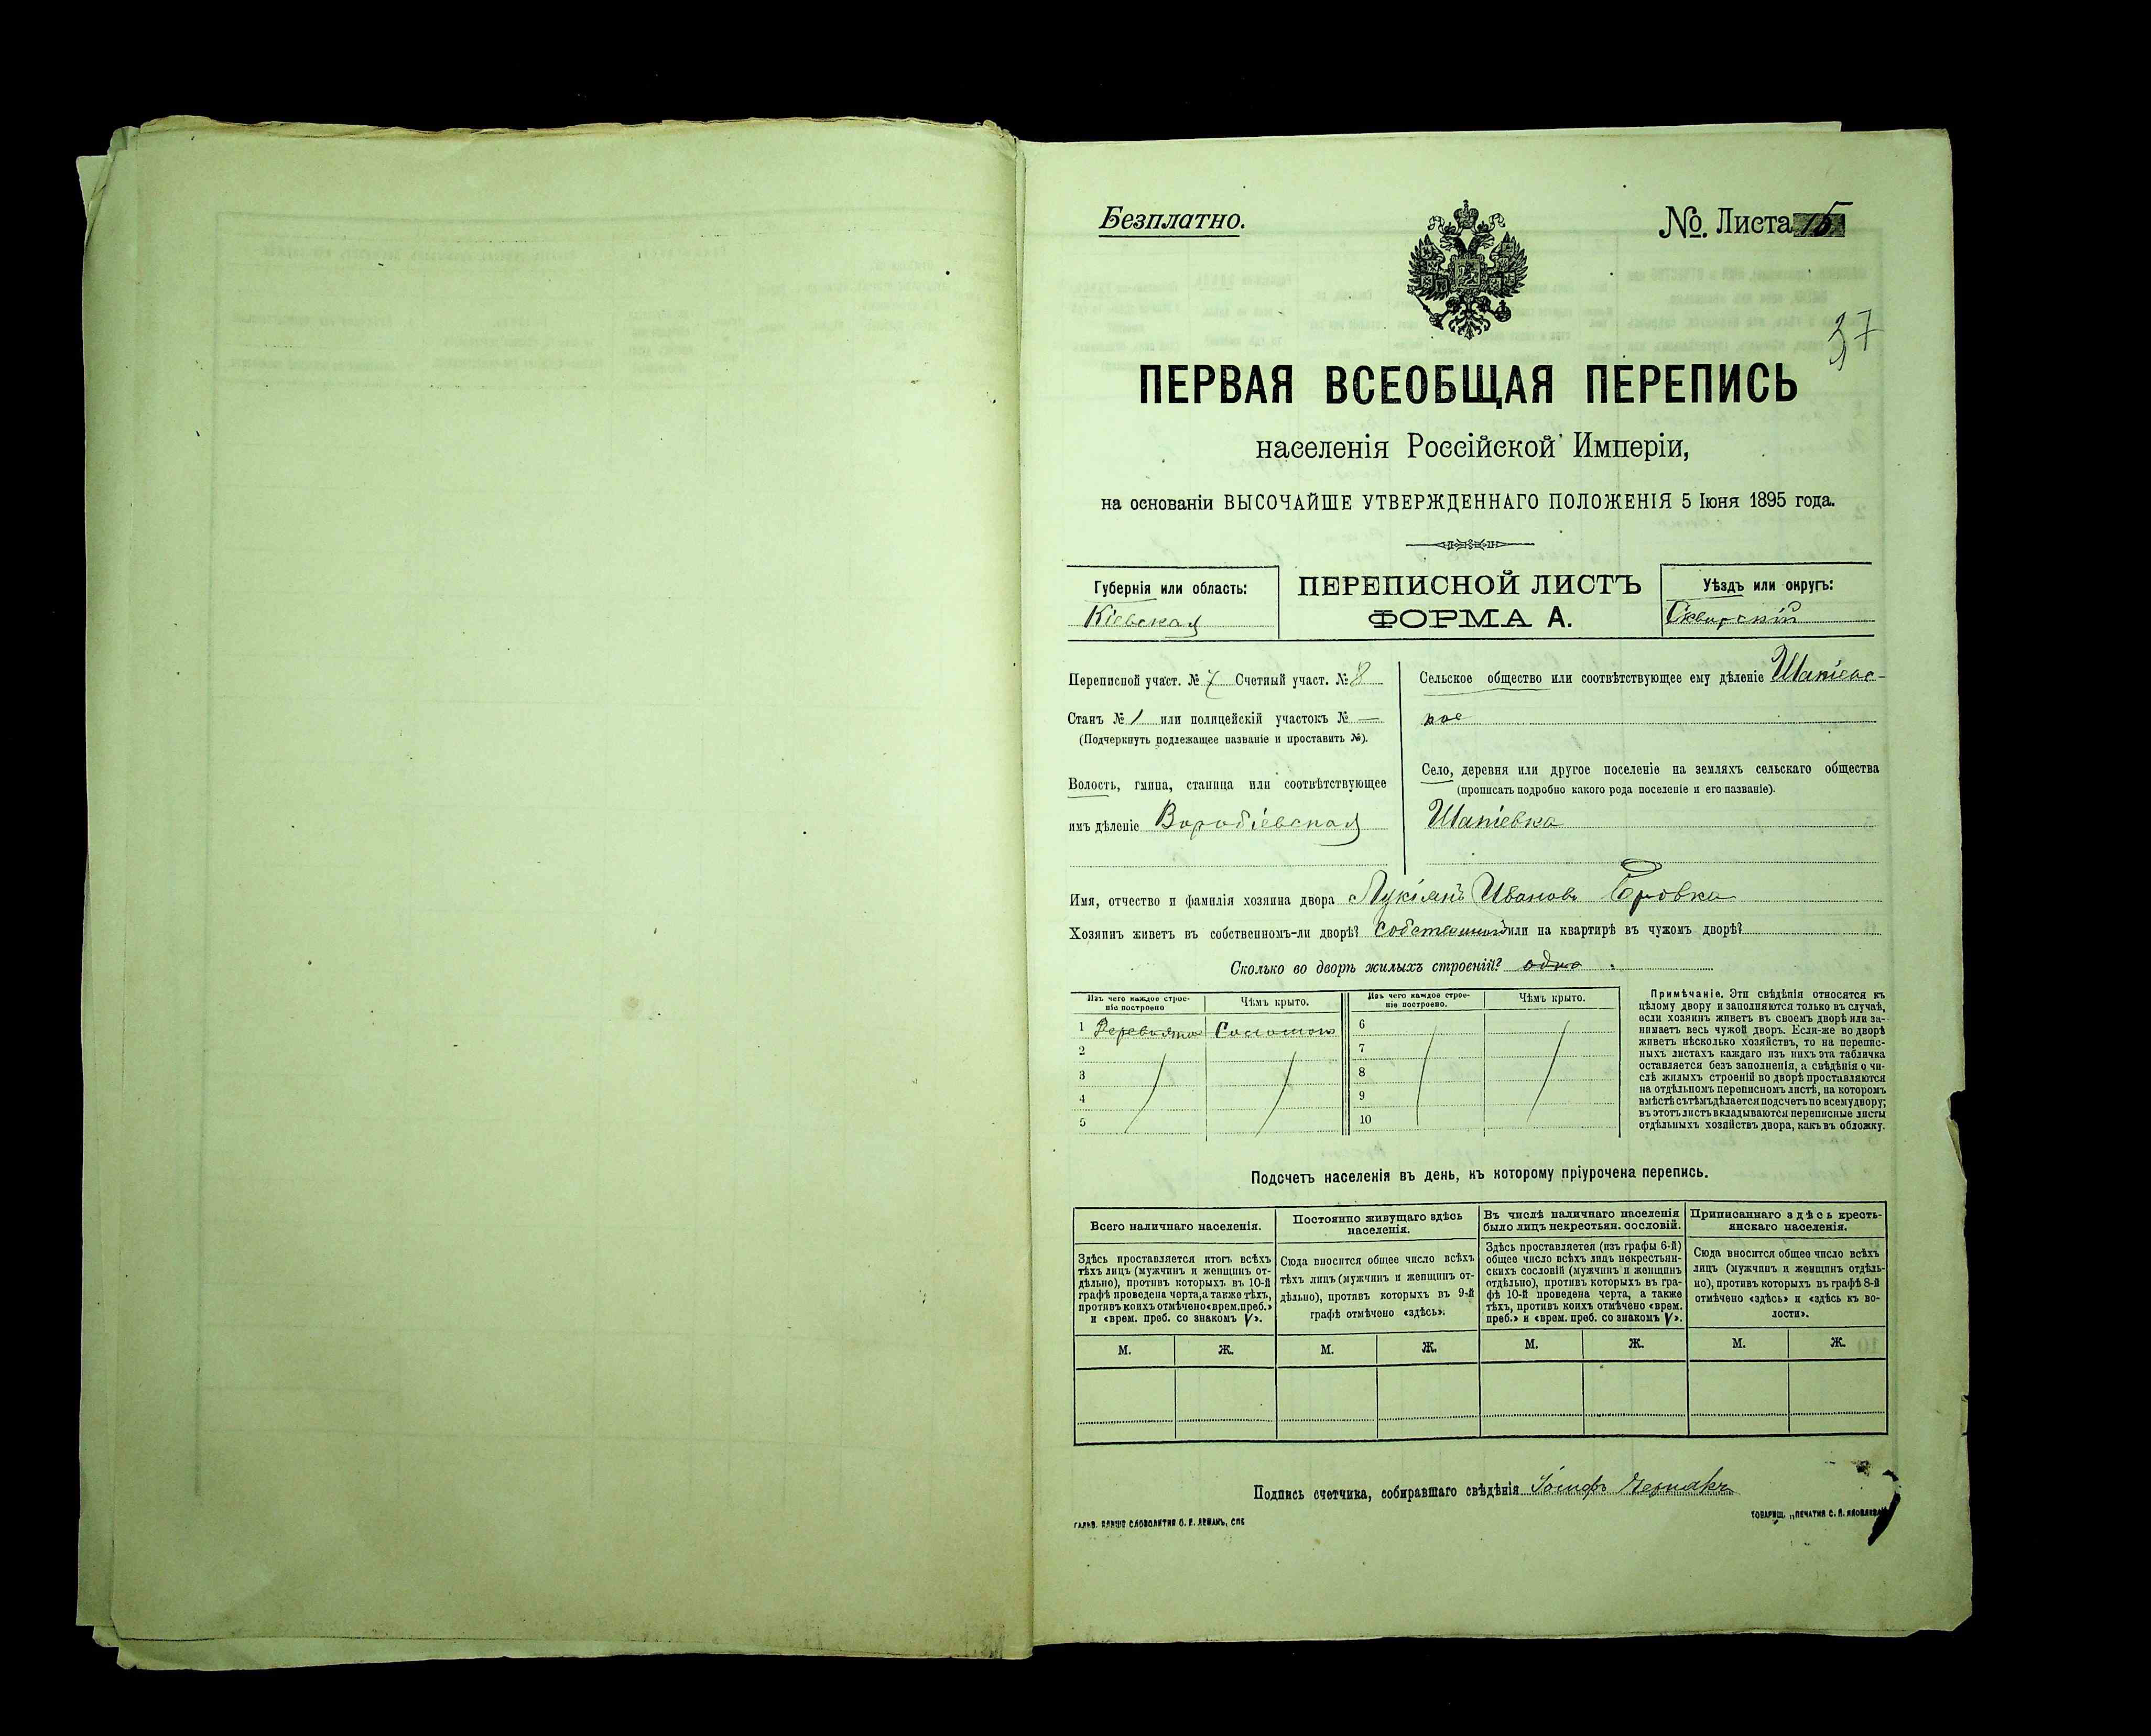 Безплатно.
№. Листа 15
37
ПЕРВАЯ ВСЕОБЩАЯ ПЕРЕПИСЬ
населенія Россійской Имперіи,
на основаніи ВЫСОЧАЙШЕ УТВЕРЖДЕННАГО ПОЛОЖЕНІЯ 5 Іюня 1895 года.
Губернія или область:
Кіевская
ПЕРЕПИСНОЙ ЛИСТЪ
ФОРМА А.
Уѣздъ или округъ:
Сквирскій
Переписной участ. № 7 Счетный участ. № 8
Станъ № 1 или полицейскій участокъ № —
(Подчеркнуть подлежащее названіе и проставить №).
Волость, гмина, станица или соотвѣтствующее
имъ дѣленіе Воробіевская
Сельское общество или соотвѣтствующее ему дѣленіе Шапіевс-
кое
Село, деревня или другое поселеніе на земляхъ сельскаго общества
(прописать подробно какого рода поселеніе и его названіе).
Шапіевка
Имя, отчество и фамилія хозяина двора Лукіянъ Ивановъ Бровка
Хозяинъ живетъ въ собственномъ-ли дворѣ? или на квартирѣ въ чужомъ дворѣ?
Сколько во дворѣ жилыхъ строеній? одно
Изъ чего каждое строе-
ніе построено
Чѣмъ крыто.
Изъ чего каждое строе-
ніе построено.
Чѣмъ крыто.
1
2
3
4
5
6
7
8
9
10
Примѣчаніе. Эти свѣдѣнія относятся къ
цѣлому двору и заполняются только въ случаѣ,
если хозяинъ живетъ въ своемъ дворѣ или за-
нимаетъ весь чужой дворъ. Если-же во дворѣ
живетъ нѣсколько хозяйствъ, то на перепис-
ныхъ листахъ каждаго изъ нихъ эта табличка
оставляется безъ заполненія, а свѣдѣнія о чи-
слѣ жилыхъ строеній во дворѣ проставляются
на отдѣльномъ переписномъ листѣ, на которомъ
вмѣстѣ съ тѣмъ дѣлается подсчетъ по всему двору;
въ этотъ листъ вкладываются переписные листы
отдѣльныхъ хозяйствъ двора, какъ въ обложку.
Подсчетъ населенія въ день, къ которому пріурочена перепись.
Всего наличнаго населенія.
Здѣсь проставляется итогъ всѣхъ
тѣхъ лицъ (мужчинъ и женщинъ от-
дѣльно), противъ которыхъ въ 10-й
графѣ проведена черта, а также тѣхъ,
противъ коихъ отмѣчено «врем. преб.»
и «врем. преб. со знакомъ V».
Постоянно живущаго здѣсь
населенія.
Сюда вносится общее число всѣхъ
тѣхъ лицъ (мужчинъ и женщинъ от-
дѣльно), противъ которыхъ въ 9-й
графѣ отмѣчено «здѣсь».
Въ числѣ наличнаго населенія
было лицъ некрестьян. сословій.
Здѣсь проставляется (изъ графы 6-й)
общее число всѣхъ лицъ некрестьян-
скихъ сословій (мужчинъ и женщинъ
отдѣльно), противъ которыхъ въ гра-
фѣ 10-й проведена черта, а также
тѣхъ, противъ коихъ отмѣчено «врем.
преб.» и «врем. преб. со знакомъ V».
Приписаннаго здѣсь кресть-
янскаго населенія.
Сюда вносится общее число всѣхъ
лицъ (мужчинъ и женщинъ отдѣль-
но), противъ которыхъ въ графѣ 8-й
отмѣчено «здѣсь» и «здѣсь къ во-
лости».
М. Ж. М. Ж. М. Ж. М. Ж.
Подпись счетчика, собиравшаго свѣдѣнія
ТОВАРИЩ. „ПЕЧАТНЯ С. П. ЯКОВЛЕВА"